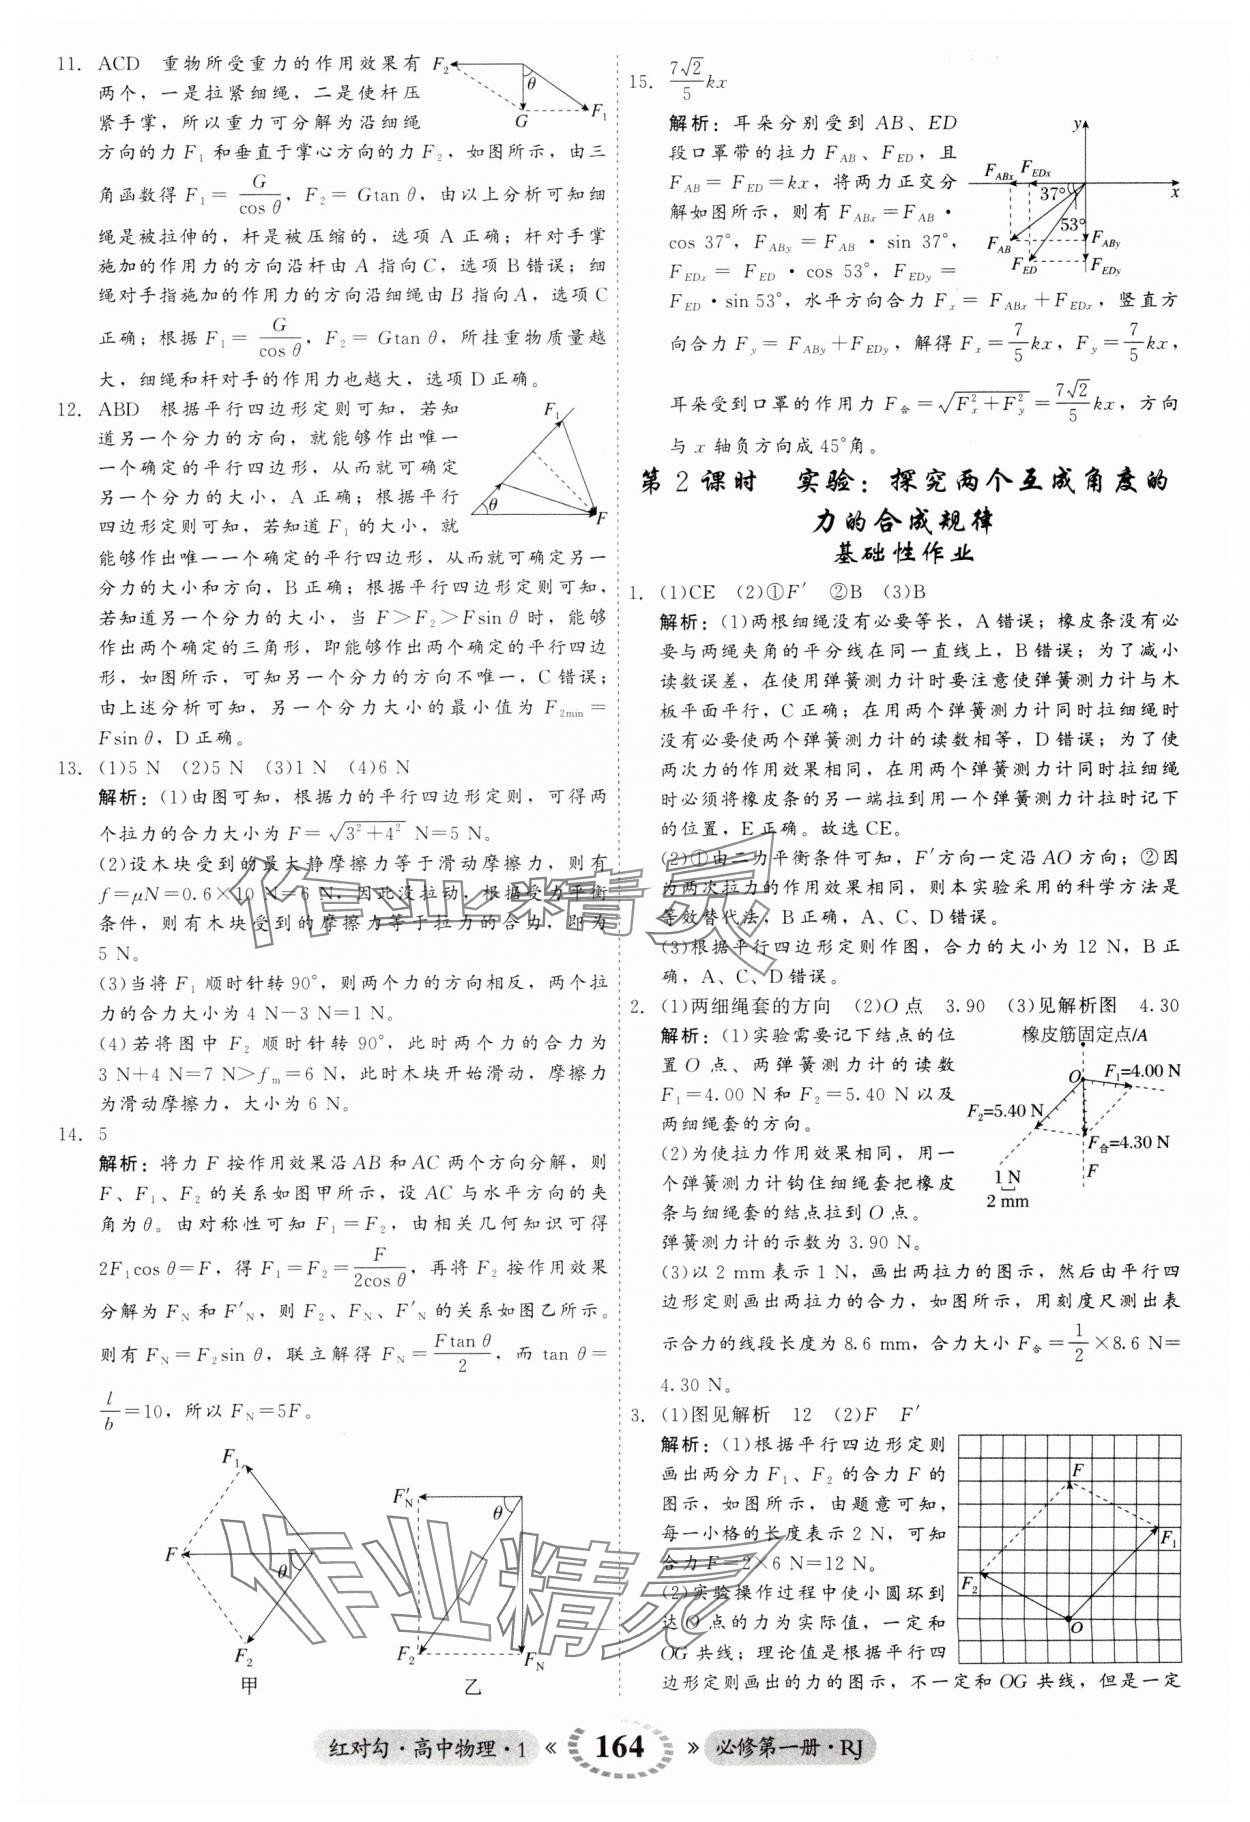 11. ACD 重物所受重力的作用效果有
两个,一是拉紧细绳,二是使杆压
紧手掌,所以重力可分解为沿细绳
方向的力F₁和垂直于掌心方向的力F₂,如图所示,由三
角函数得F₁=G/cos θ,F₂=Gtan θ,由以上分析可知细
绳是被拉伸的,杆是被压缩的,选项A正确;杆对手掌
施加的作用力的方向沿杆由A指向C,选项B错误;细
绳对手指施加的作用力的方向沿细绳由B指向A,选项C
正确;根据F₁=G/cos θ,F₂=Gtan θ,所挂重物质量越
大,细绳和杆对手的作用力也越大,选项D正确。
F₂ θ G F₁
12. ABD 根据平行四边形定则可知,若知
道另一个分力的方向,就能够作出唯一
一个确定的平行四边形,从而就可确定
另一个分力的大小,A正确;根据平行
四边形定则可知,若知道F₁的大小,就
能够作出唯一一个确定的平行四边形,从而就可确定另一
分力的大小和方向,B正确;根据平行四边形定则可知,
若知道另一个分力的大小,当F>F₂>Fsin θ时,能够
作出两个确定的三角形,即能够作出两个确定的平行四边
形,如图所示,可知另一个分力的方向不唯一,C错误;
由上述分析可知,另一个分力大小的最小值为F₂min=
Fsin θ,D正确。
F₁ θ F
13. (1)5 N (2)5 N (3)1 N (4)6 N
解析:(1)由图可知,根据力的平行四边形定则,可得两
个拉力的合力大小为F=√(3²+4²) N=5 N。
(2)设木块受到的最大静摩擦力等于滑动摩擦力,则有
f=μN=0.6×10 N=6 N,因此没拉动,根据受力平衡
条件,则有木块受到的摩擦力等于拉力的合力,即为
5 N。
(3)当将F₁顺时针转90°,则两个力的方向相反,两个拉
力的合力大小为4 N-3 N=1 N。
(4)若将图中F₂顺时针转90°,此时两个力的合力为
3 N+4 N=7 N>fₘ=6 N,此时木块开始滑动,摩擦力
为滑动摩擦力,大小为6 N。
14. 5
解析:将力F按作用效果沿AB和AC两个方向分解,则
F、F₁、F₂的关系如图甲所示,设AC与水平方向的夹
角为θ。由对称性可知F₁=F₂,由相关几何知识可得
2F₁cos θ=F,得F₁=F₂=F/2cos θ,再将F₂按作用效果
分解为F_N和F'_N,则F₂、F_N、F'_N的关系如图乙所示。
则有F_N=F₂sin θ,联立解得F_N=Ftan θ/2,而tan θ=
l/b=10,所以F_N=5F。
F₁ F θ F₂ 甲
F'_N θ F₂ F_N 乙
15. 7√2/5 kx
解析:耳朵分别受到AB、ED
段口罩带的拉力F_AB、F_ED,且
F_AB=F_ED=kx,将两力正交分
解如图所示,则有F_ABx=F_AB·
cos 37°,F_ABy=F_AB·sin 37°,
F_EDx=F_ED·cos 53°,F_EDy=
F_ED·sin 53°,水平方向合力Fₓ=F_ABx+F_EDx,竖直方
向合力F_y=F_ABy+F_EDy,解得Fₓ=7/5 kx,F_y=7/5 kx,
耳朵受到口罩的作用力F合=√(Fₓ²+F_y²)=7√2/5 kx,方向
与x轴负方向成45°角。
y F_ABx F_EDx 37° x 53° F_AB F_ABy F_ED F_EDy
第2课时 实验:探究两个互成角度的
力的合成规律
基础性作业
1. (1)CE (2)①F' ②B (3)B
解析:(1)两根细绳没有必要等长,A错误;橡皮条没有必
要与两绳夹角的平分线在同一直线上,B错误;为了减小
读数误差,在使用弹簧测力计时要注意使弹簧测力计与木
板平面平行,C正确;在用两个弹簧测力计同时拉细绳时
没有必要使两个弹簧测力计的读数相等,D错误;为了使
两次力的作用效果相同,在用两个弹簧测力计同时拉细绳
时必须将橡皮条的另一端拉到用一个弹簧测力计拉时记下
的位置,E正确。故选CE。
(2)①由二力平衡条件可知,F'方向一定沿AO方向;②因
为两次拉力的作用效果相同,则本实验采用的科学方法是
等效替代法,B正确,A、C、D错误。
(3)根据平行四边形定则作图,合力的大小为12 N,B正
确,A、C、D错误。
2. (1)两细绳套的方向 (2)O点 3.90 (3)见解析图 4.30
解析:(1)实验需要记下结点的位
置O点、两弹簧测力计的读数
F₁=4.00 N和F₂=5.40 N以及
两细绳套的方向。
(2)为使拉力作用效果相同,用一
个弹簧测力计钩住细绳套把橡皮
条与细绳套的结点拉到O点。
弹簧测力计的示数为3.90 N。
(3)以2 mm表示1 N,画出两拉力的图示,然后由平行四
边形定则画出两拉力的合力,如图所示,用刻度尺测出表
示合力的线段长度为8.6 mm,合力大小F合=1/2×8.6 N=
4.30 N。
橡皮筋固定点/A
O F₁=4.00 N
F₂=5.40 N
F合=4.30 N
F
1 N
2 mm
3. (1)图见解析 12 (2)F F'
解析:(1)根据平行四边形定则
画出两分力F₁、F₂的合力F的
图示,如图所示,由题意可知,
每一小格的长度表示2 N,可知
合力F=2×6 N=12 N。
(2)实验操作过程中使小圆环到
达O点的力为实际值,一定和
OG共线;理论值是根据平行四
边形定则画出的力的图示,不一定和OG共线,但是一定
F F₁ F₂ O
作业精灵
作业精灵
红对勾·高中物理·1 « 164 » 必修第一册·RJ